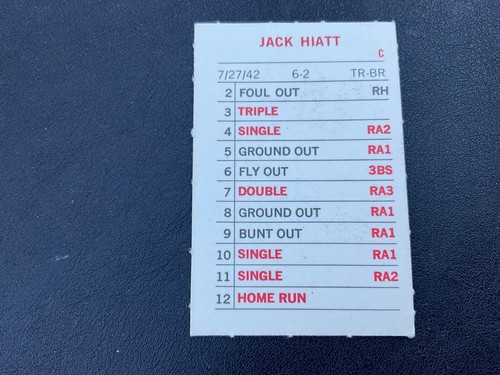 JACK HIATT
C
7/27/42 6-2 TR-BR
2 FOUL OUT RH
3 TRIPLE
4 SINGLE RA2
5 GROUND OUT RA1
6 FLY OUT 3BS
7 DOUBLE RA3
8 GROUND OUT RA1
9 BUNT OUT RA1
10 SINGLE RA1
11 SINGLE RA2
12 HOME RUN